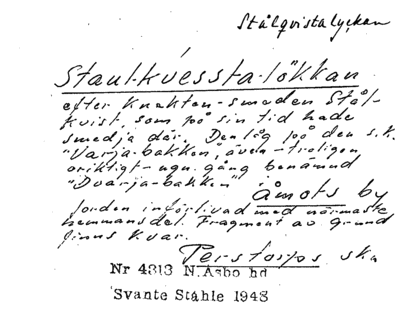 Stålqvistalyckan
Staul-kvessta-lökkan
efter knekten-smeden Stål-
kvist, som på sin tid hade
smedja där. Den låg på den s.k.
"Varja-bakken", även-troligen
oriktigt-ngn. gång benämnd
"Dvarja-bakken" Åmots by
Jorden införlivad med närmaste
hemmansdel. Fragment av grund
finns kvar.
Perstorps skn
Nr 4313 N.Åsbo hd
Svante Ståhle 1948